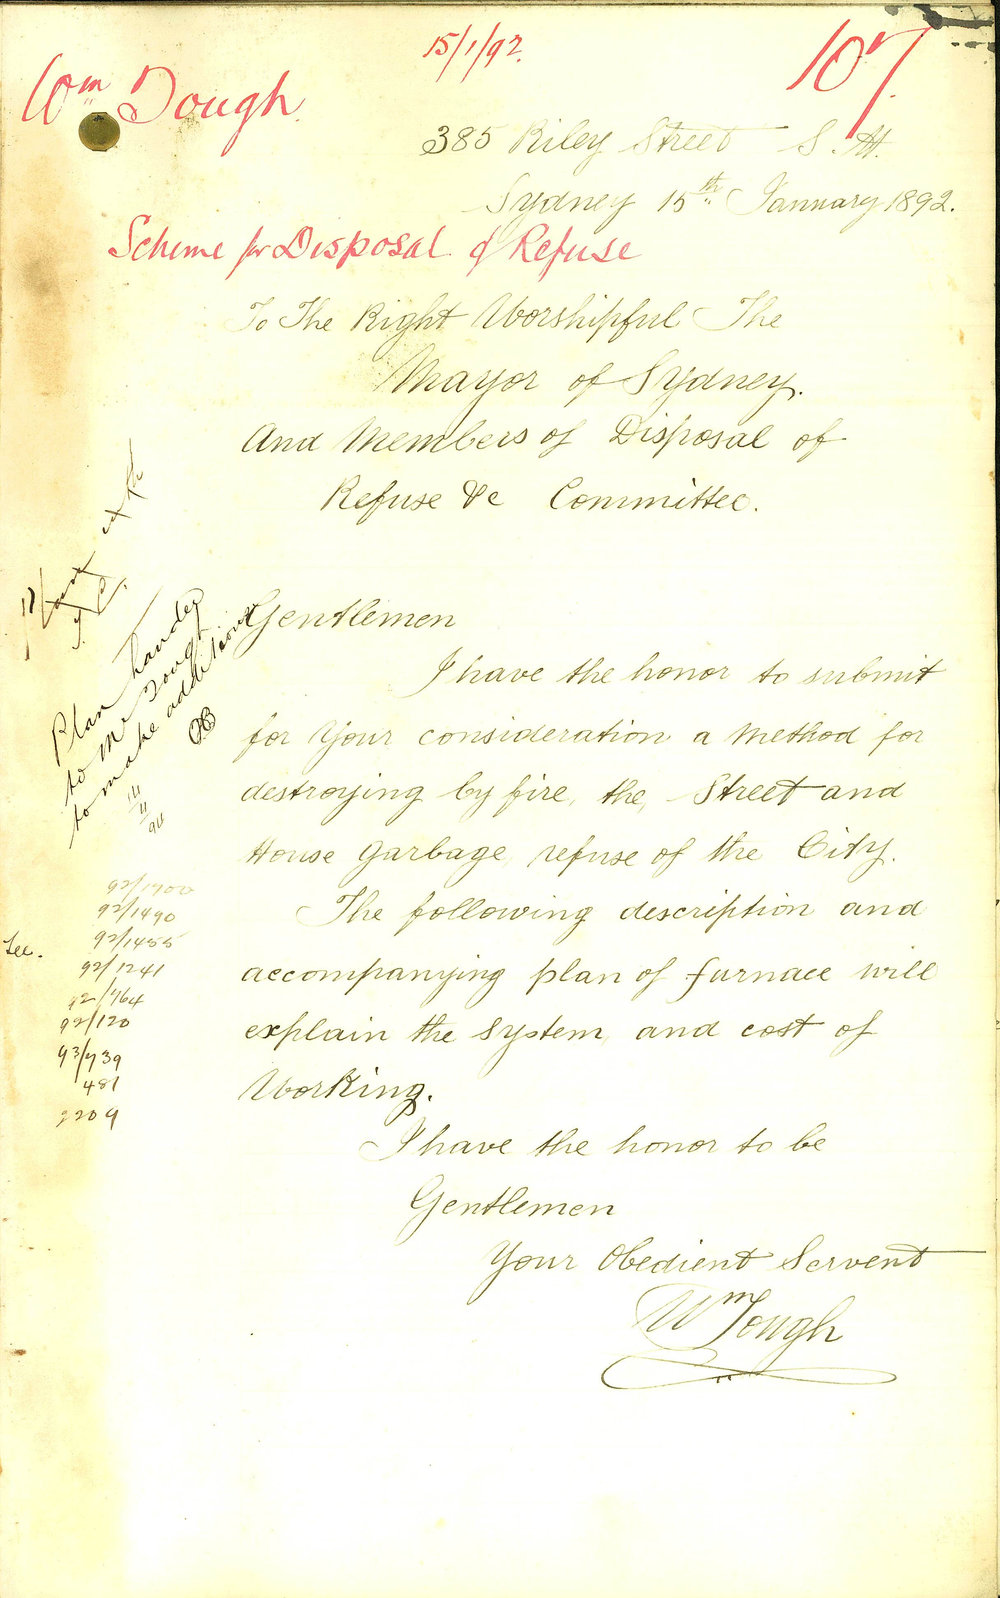 15/1/92.
107.
Wm Tough.
385 Riley Street S. H.
Sydney 15th January 1892.
Scheme for Disposal of Refuse
To The Right Worshipful The
Mayor of Sydney.
And Members of Disposal of
Refuse &c Committee.
Gentlemen
I have the honor to submit
for Your consideration a Method for
destroying by fire, the, Street and
House garbage, refuse of the City.
The following description and
accompanying plan of furnace will
explain the System, and cost of
Working.
I have the honor to be
Gentlemen
Your Obedient Servent
Wm Tough
Plan handed
to Mr Tough
to make additions
14/4/94
See.
92/1900
92/1490
92/1455
92/1241
92/764
92/120
93/739
481
2209